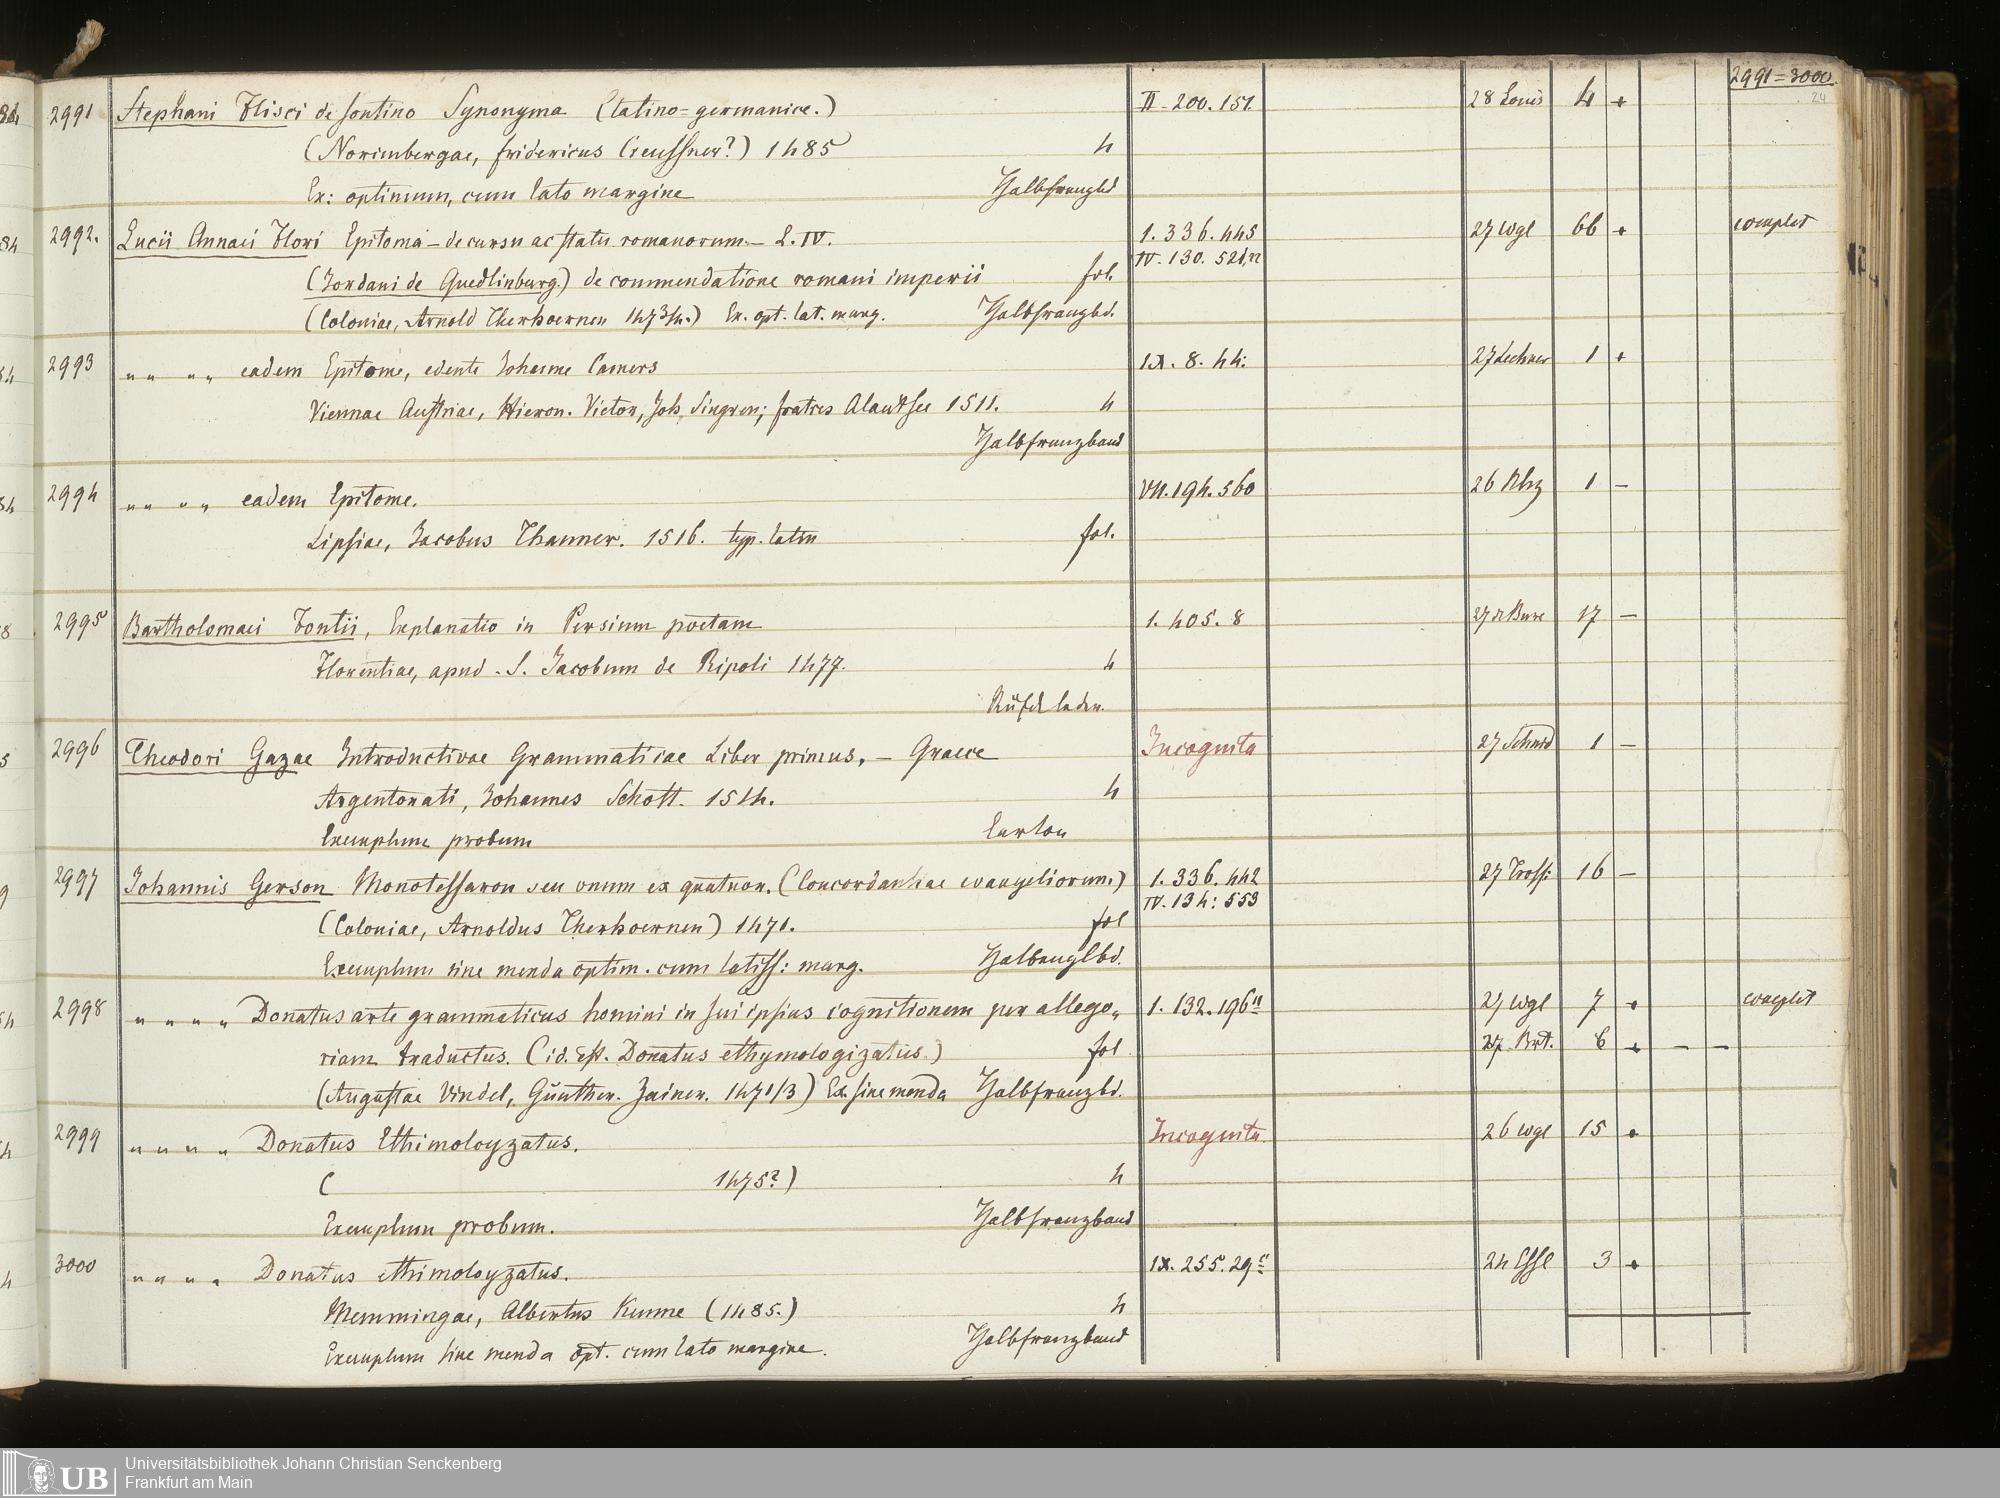 2991=3000.
24
2991 Stephani Flisci de sontino Synonyma (latino=germanice.) II. 200. 151. 28 Louis 4 +
(Norimbergae, fridericus Creussner?) 1485 4
Ex: optimum, cum lato margine Halbfrangbd
2992. Lucii Annaei Flori Epitoma – de cursu ac statu romanorum. – L. IV. 1. 336. 445 27 Wgl 66 + complet
IV. 130. 521,n
(Jordani de Quedlinburg.) de commendatione romani imperii fol.
(Coloniae, Arnold Therhoernen 1473/4.) Ex. opt. lat. marg. Halbfrangbd.
2993 " " " " eadem Epitome, edente Johanne Camers IX. 8. 44. 27 Lechner 1 +
Viennae Austriae, Hieron. Victor, Joh. Singren; fratres Alantsee 1511. 4
Halbfranzband
2994 " " " " eadem Epitome. VII. 194. 560 26 1 –
Lipsiae, Jacobus Thanner. 1516. typ. latin fol.
2995 Bartholomaei Fontii, Explanatio in Persium poetam 1. 405. 8 27 17 –
Florentiae, apud S. Jacobum de Ripoli 1477. 4
2996 Theodori Gazae Introductivae Grammaticae Liber primus. – Graece Incognita 27 Schmid 1 –
Argentorati, Johannes Schott. 1514. 4
Exemplum probum Carton
2997 Johannis Gerson Monotessaron seu unum ex quatuor. (Concordanhae evangeliorum.) 1. 336. 442 27 Tross: 16 –
IV. 134: 553
(Coloniae, Arnoldus Therhoernen) 1471. fol
Exemplum sine menda optim. cum latiss: marg.
2998 " " " " Donatus arte grammaticus homini in sui ipsius cognitionem per allego„ 1. 132. 196" 27 Wgl 7 + complet
riam traductus. (id. est. Donatus ethymologizatus.) fol 27 6 + – –
(Augustae Vindel, Günther. Zainer. 1471/3) Ex. sine menda Halbfranzbd.
2999 " " " " Donatus Ethimologyzatus. Incognita. 26 Wgl 15 +
( 1475?) 4
Exemplum probum. Halbfranzband
3000 " " " " Donatus ethimologyzatus. IX. 255. 29 24 3 +
Memmingae, Albertus Kunne (1485.) 4
Exemplum sine menda opt. cum lato margine. Halbfranzband
UB
Universitätsbibliothek Johann Christian Senckenberg
Frankfurt am Main